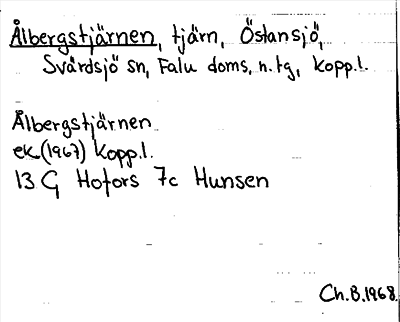 Ålbergstjärnen, tjärn, Östansjö,
Svärdsjö sn, Falu doms. n. tg, Kopp.l.
Ålbergstjärnen
ek. (1967) Kopp.l.
13 G Hofors 7c Hunsen
Ch.B.1968.